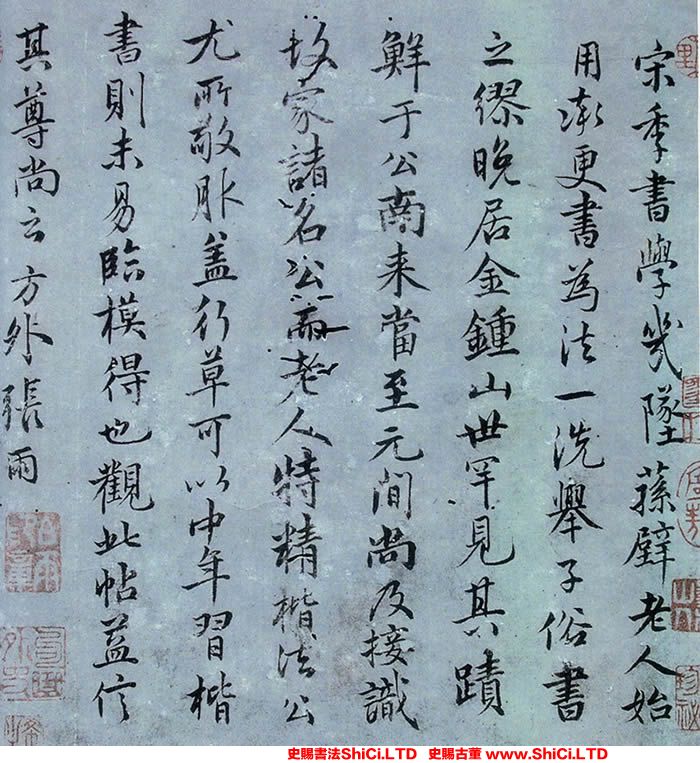 宋季書學幾墜蓀壁老人始
用漸更書為法一洗舉子俗書
之繆晚居金鍾山世罕見其蹟
鮮于公南来當至元間尚及接識
故家諸名公而老人特精楷法公
尤所敬服盖行草可以中年習楷
書則未易臨模得也觀此帖益信
其尊尚云方外張雨
史賜書法ShiCi.LTD 史賜古董 www.ShiCi.LTD